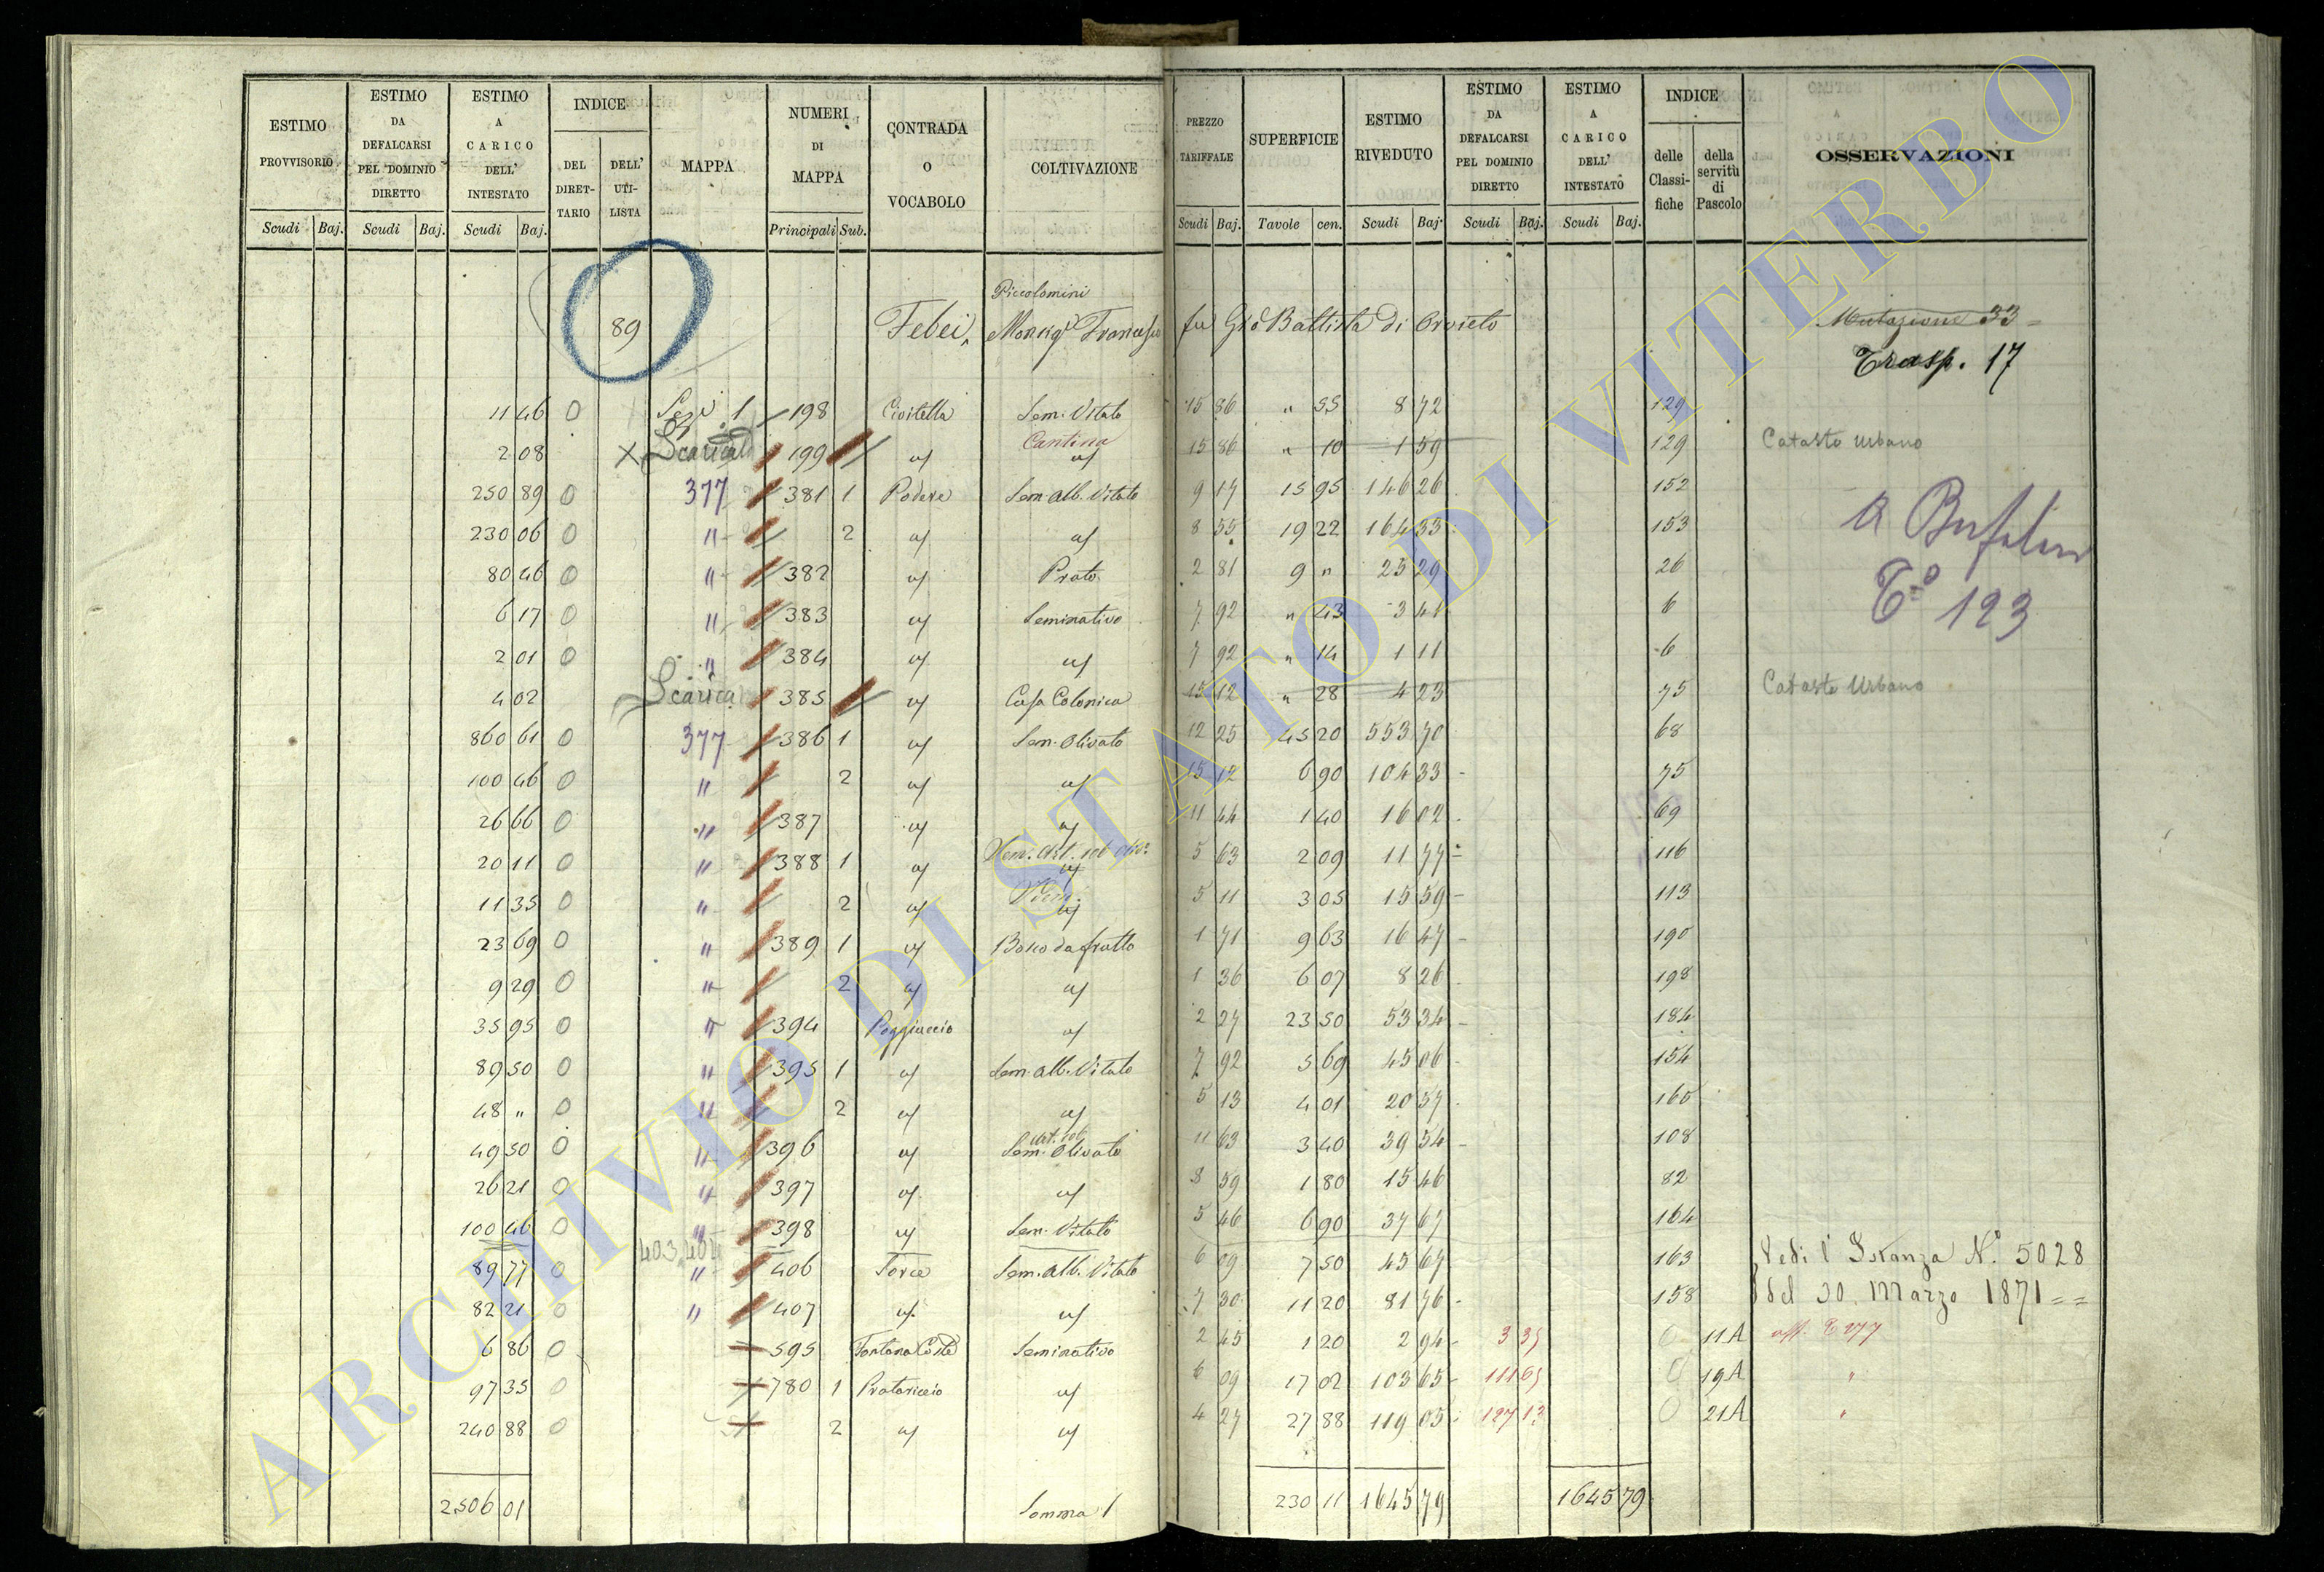 ESTIMO PROVVISORIO
ESTIMO DA DEFALCARSI PEL DOMINIO DIRETTO
ESTIMO A CARICO DELL' INTESTATO
INDICE
DEL DIRET-TARIO
DELL' UTI-LISTA
MAPPA
NUMERI DI MAPPA
CONTRADA O VOCABOLO
COLTIVAZIONE
PREZZO TARIFFALE
SUPERFICIE
ESTIMO RIVEDUTO
ESTIMO DA DEFALCARSI PEL DOMINIO DIRETTO
ESTIMO A CARICO DELL' INTESTATO
INDICE
delle Classi-fiche
della servitù di Pascolo
OSSERVAZIONI
Scudi Baj. Scudi Baj. Scudi Baj. Principali Sub. Scudi Baj. Tavole cen. Scudi Baj. Scudi Baj. Scudi Baj.
Piccolomini
89 Febei, fu Gio Battista di Orvieto Mutazione 33
Trasp. 17
11 46 0 1 198 Civitella Sem. Vitato 15 86 " 55 8 72 129
Cantina
2 08 X Scarica 199 15 86 " 10 1 59 129 Catasto Urbano
250 89 0 377 381 1 Podere Sem. alb. Vitato 9 17 15 95 146 26 152
230 06 0 " 2 8 55 19 22 164 33 153
80 46 0 " 382 Prato 2 81 9 " 25 29 26
6 17 0 " 383 Seminativo 7 92 " 43 3 41 6
2 01 0 " 384 7 92 " 14 1 11 6
4 02 Scarica 385 Casa Colonica 15 12 " 28 4 23 75 Catasto Urbano
860 61 0 377 386 1 Sem. Olivato 12 25 45 20 553 70 68
100 46 0 " 2 15 12 6 90 104 33 75
26 66 0 " 387 11 44 1 40 16 02 69
20 11 0 " 388 1 5 63 2 09 11 77 116
11 35 0 " 2 5 11 3 05 15 59 113
23 69 0 " 389 1 Bosco da frutto 1 71 9 63 16 47 190
9 29 0 " 2 1 36 6 07 8 26 198
35 95 0 " 394 Poggiaccio 2 27 23 50 53 34 184
89 50 0 " 395 1 Sem. alb. Vitato 7 92 5 69 45 06 154
48 " 0 " 2 5 13 4 01 20 57 165
49 50 0 " 396 Sem. Olivato 11 63 3 40 39 54 108
26 21 0 " 397 8 59 1 80 15 46 82
100 46 0 " 398 Sem. Vitato 5 46 6 90 37 67 164
89 77 0 " 406 Torre Sem. alb. Vitato 6 09 7 50 45 67 163 Vedi l' Istanza N.° 5028
82 21 0 " 407 7 30 11 20 81 76 158 del 30. Marzo 1871 = =
6 86 0 595 Seminativo 2 45 1 20 2 94 3 35 0 11A
97 35 0 780 1 Pratoriccio 6 09 17 02 103 65 111 65 0 19A "
240 88 0 2 4 27 27 88 119 05 127 13 0 21A "
2506 01 Somma 1 230 11 1645 79 1645 79
a
T.° 123
ARCHIVIO DI STATO DI VITERBO